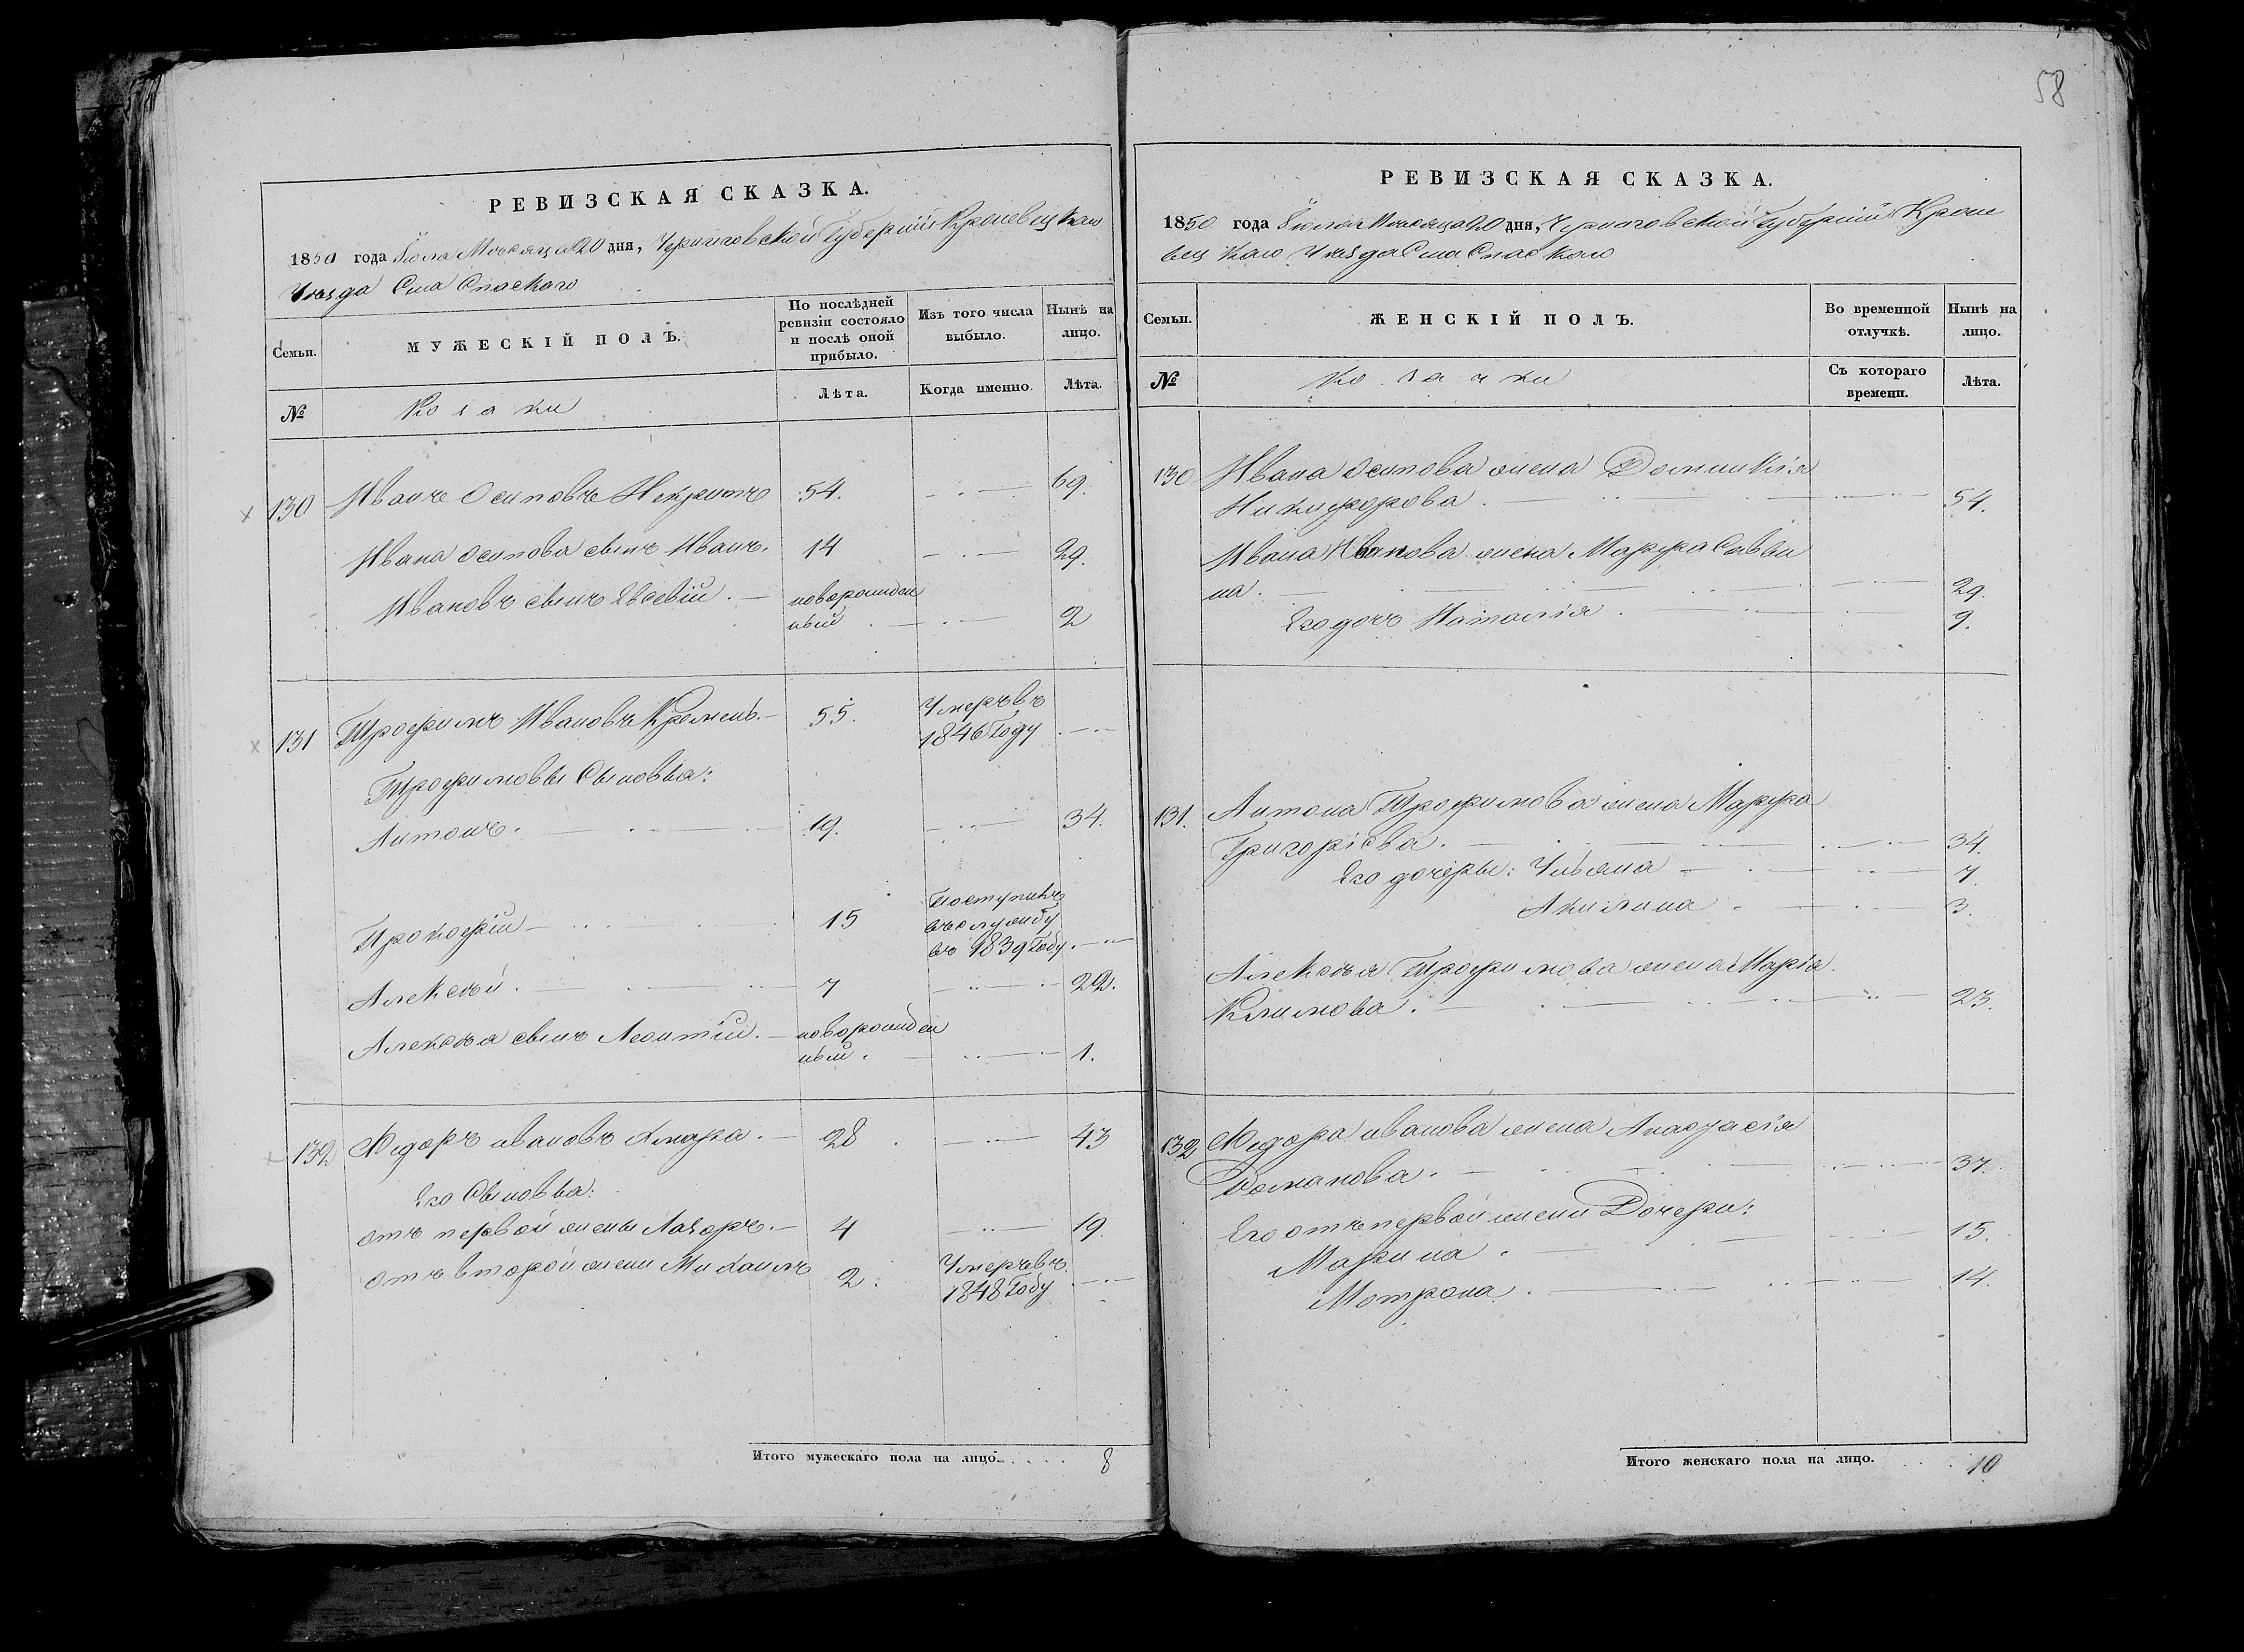 58
РЕВИЗСКАЯ СКАЗКА.
1850 года Іюля Мѣсяца 20 дня, Черниговской Губерніи Кролевецкаго
Уѣзда Села Спаскаго
Семьи.
МУЖЕСКІЙ ПОЛЪ.
По послѣдней ревизіи состояло и послѣ оной прибыло.
Изъ того числа выбыло.
Нынѣ на лицо.
№
Козаки
Лѣта.
Когда именно.
Лѣта.
130 Иванъ Осиповъ 54. 69.
Ивана Осипова сынъ Иванъ. 14 29.
Ивановъ сынъ Евсевій. новорожден
ный 2
131 Трофимъ Ивановъ Кремень. 55. Умеръ въ
1846 Году
Трофимовы Сыновья:
Антонъ. 19. 34.
Прокофій 15 Поступилъ
въ службу
въ 1839 Году.
Алексѣй. 7 22.
Алексѣя сынъ Леонтій. новорожден
ный. 1.
132 Ѳедоръ ивановъ 28 43
Его Сыновья:
отъ первой жены Лазоръ. 4 19
отъ второй жены Михаилъ 2. Умеръ въ
1848 Году
Итого мужескаго пола на лицо. 8
РЕВИЗСКАЯ СКАЗКА.
1850 года Іюля Мѣсяца 20 дня, Черниговской Губерніи Кроле
вецкаго Уѣзда Села Спаскаго
Семьи.
ЖЕНСКІЙ ПОЛЪ.
Во временной отлучкѣ.
Нынѣ на лицо.
№
Козачки
Съ котораго времени.
Лѣта.
130 Ивана Осипова жена Домникія
Никифорова. 54.
Ивана Иванова жена Марфа Савви
на. 29
Его дочь Наталія. 9.
131. Антона Трофимова жена Марфа
Григоріева. 34.
Его дочеры: Ульяна 7.
Акилина 3.
Алексѣя Трофимова жена Марія
Климова. 23.
132 Ѳедора иванова жена Анастасія
Романова. 37.
Его отъ первой жены Дочери:
Марина 15.
Мотрона 14.
Итого женскаго пола на лицо. 10